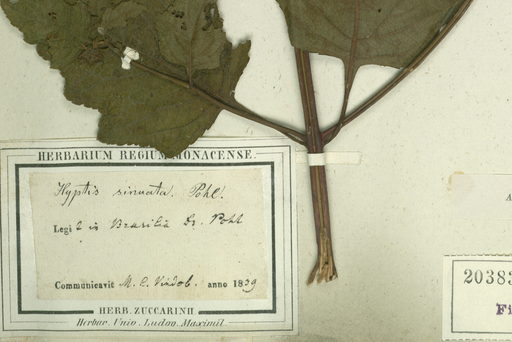 HERBARIUM REGIUM MONACENSE.
Hyptis sinuata. Pohl.
Legit in Brasilia Dr. Pohl
Communicavit M. C. Vindob. anno 1839
HERB. ZUCCARINII
Herbar. Univ. Ludov. Maximil.
A
20383
Fi